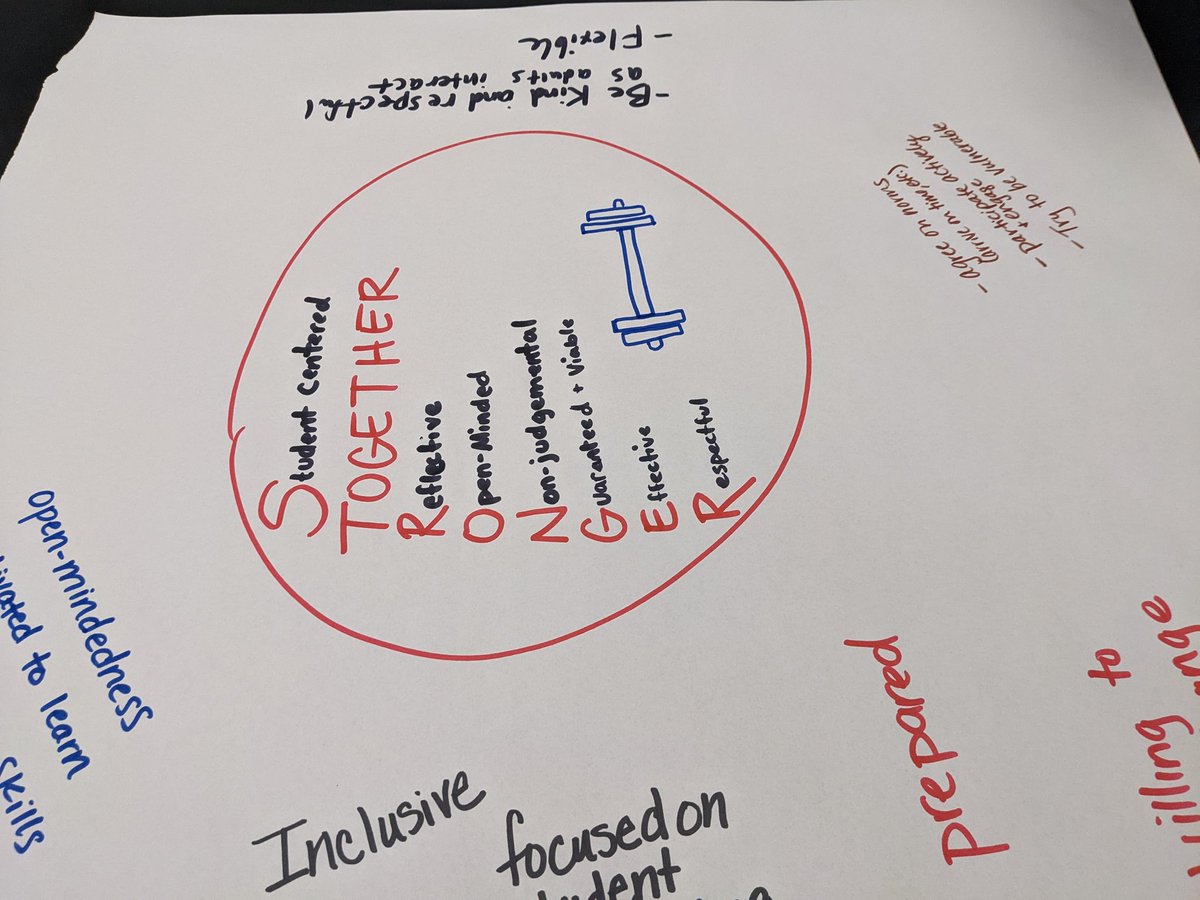 - Flexible
- Be Kind and respectful
as adults interact
- agree on norms
(arrive on time, etc.)
- participate actively
+ engage
- Try to be vulnerable
Student Centered
TOGETHER
Reflective
Open-Minded
Non-judgemental
Guaranteed + Viable
Effective
Respectful
open-mindedness
to learn
skills
Inclusive
focused on
prepared
to